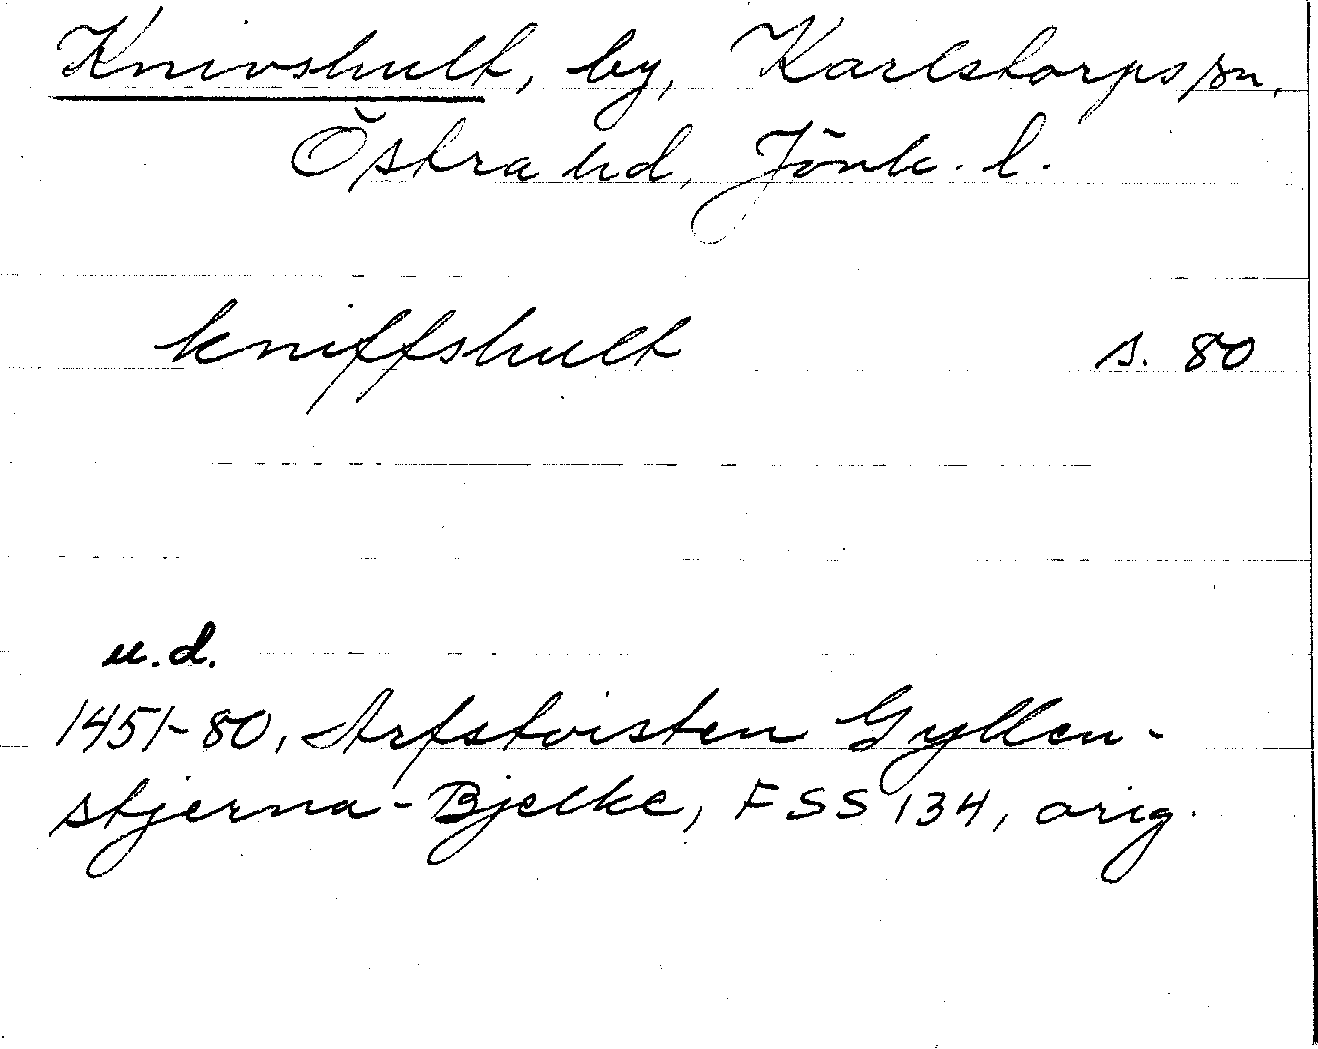 Knivshult, by, Karlstorps sn,
Östra hd, Jönk. l.
kniffshult s. 80
u.d.
1451-80, Arfstvisten Gyllen-
stjerna-Bjelke, FSS 134, orig.